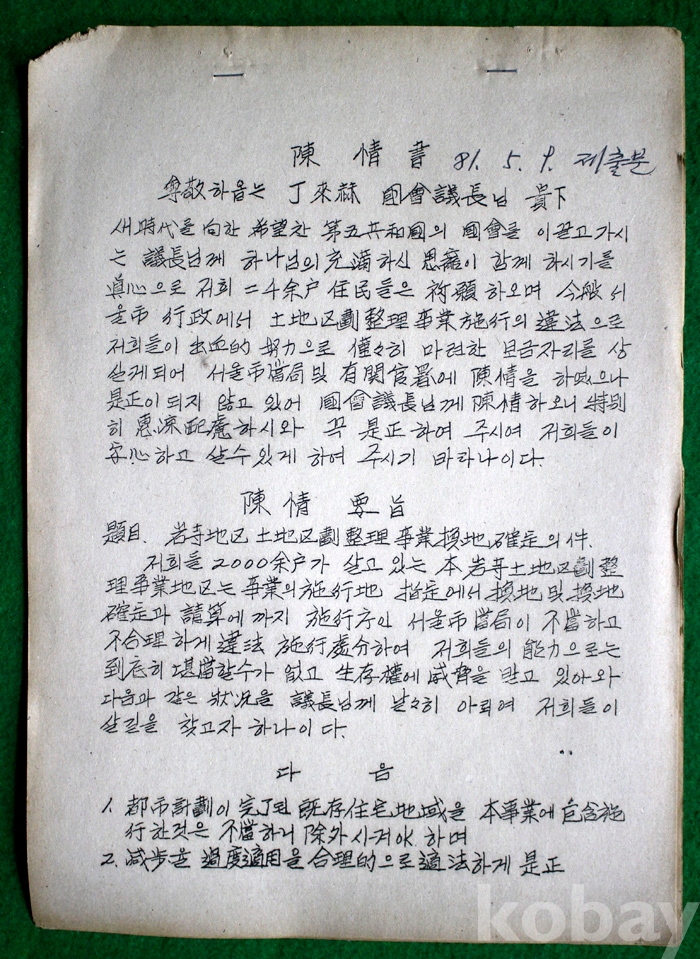 陳 情 書 81. 5. 9. 제출분
尊敬하옵는 丁來赫 國會議長님 貴下
새時代를 向한 希望찬 第五共和國의 國會를 이끌고 가시
는 議長님께 하나님의 充滿하신 恩寵이 함께 하시기를
眞心으로 저희 二千余户 住民들은 祈願하오며 今般 서
울市 行政에서 土地区劃整理事業施行의 違法으로
저희들이 出血的 努力으로 僅々히 마련한 보금자리를 상
실케되어 서울市當局 및 有関官署에 陳情을 하였으나
是正이 되지 않고 있어 國會議長님께 陳情하오니 特別
히 惠諒配慮하시와 꼭 是正하여 주시여 저희들이
安心하고 살수있게 하여 주시기 바라나이다.
陳 情 要 旨
題目. 岩寺地区 土地区劃整理事業 換地確定의 件.
저희들 2000余户가 살고 있는 本 岩寺土地区劃整
理事業地区는 事業의 施行地 指定에서 換地 및 換地
確定과 請算에 까지 施行方인 서울市當局이 不當하고
不合理하게 違法 施行處分하여 저희들의 能力으로는
到底히 堪當할수가 없고 生存權에 威脅을 받고 있아와
다음과 같은 狀況을 議長님께 낱々히 아뢰여 저희들이
살길을 찾고자 하나이다.
다 음
1. 都市計劃이 完了된 既存住宅地域을 本事業에 包含施
行한것은 不當하니 除外시켜야 하며
2. 减步을 過度適用을 合理的으로 適法하게 是正
kobay